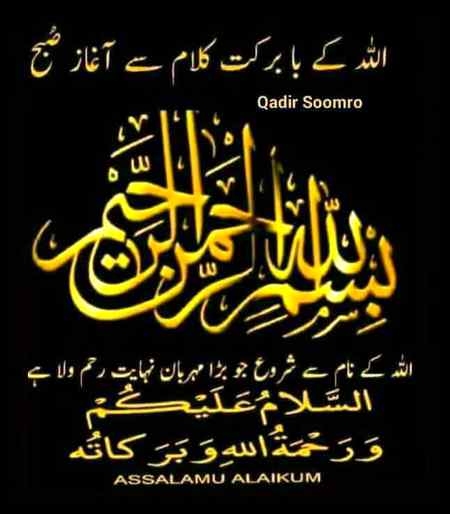 اللہ کے بابرکت کلام سے آغاز صُبح
Qadir Soomro
بِسْمِ اللهِ الرَّحْمٰنِ الرَّحِيْمِ
اللہ کے نام سے شروع جو بڑا مہربان نہایت رحم ولا ہے
السَّلَامُ عَلَيْكُمْ
وَرَحْمَةُ اللهِ وَبَرَكَاتُه
ASSALAMU ALAIKUM